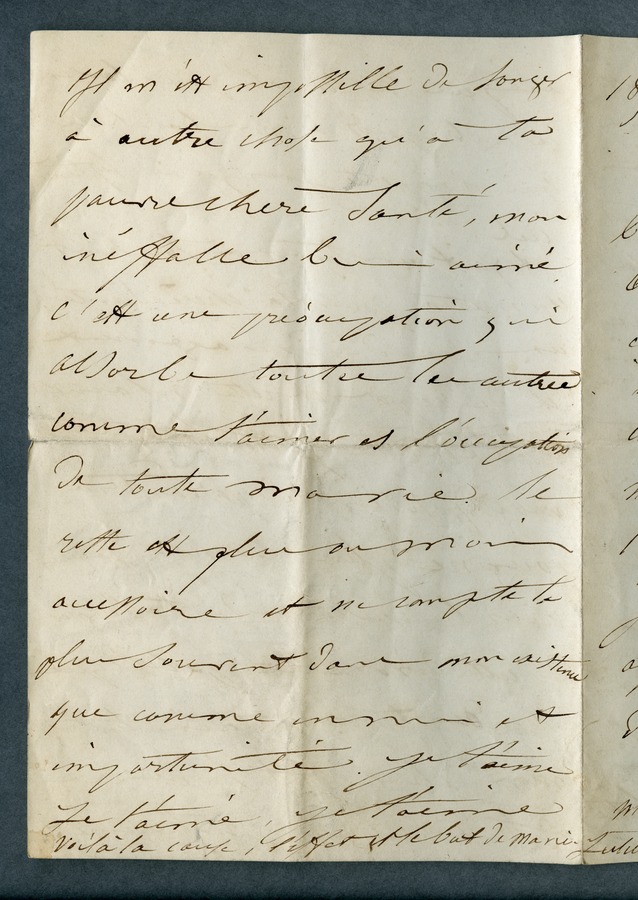 Il m'est impossible de songer
à autre chose qu'à ta
pauvre chère santé, mon
inéffable bien aimé
c'est une préocupation qui
absorbe toutes les autres
comme t'aimer est l'occupation
de toute ma vie. Le
reste est plus ou moins
accessoire et ne compte le
plus souvent dans mon existence
que comme ennui et
importunité. Je t'aime
je t'aime, je t'aime
voilà la cause, l'effet et le but de ma vie.